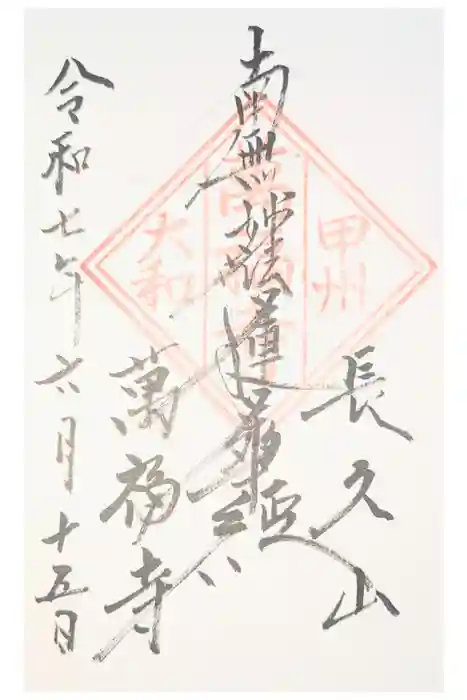 長久山
南無妙法蓮華経
萬福寺
令和七年六月十五日
甲州
萬福寺
大和